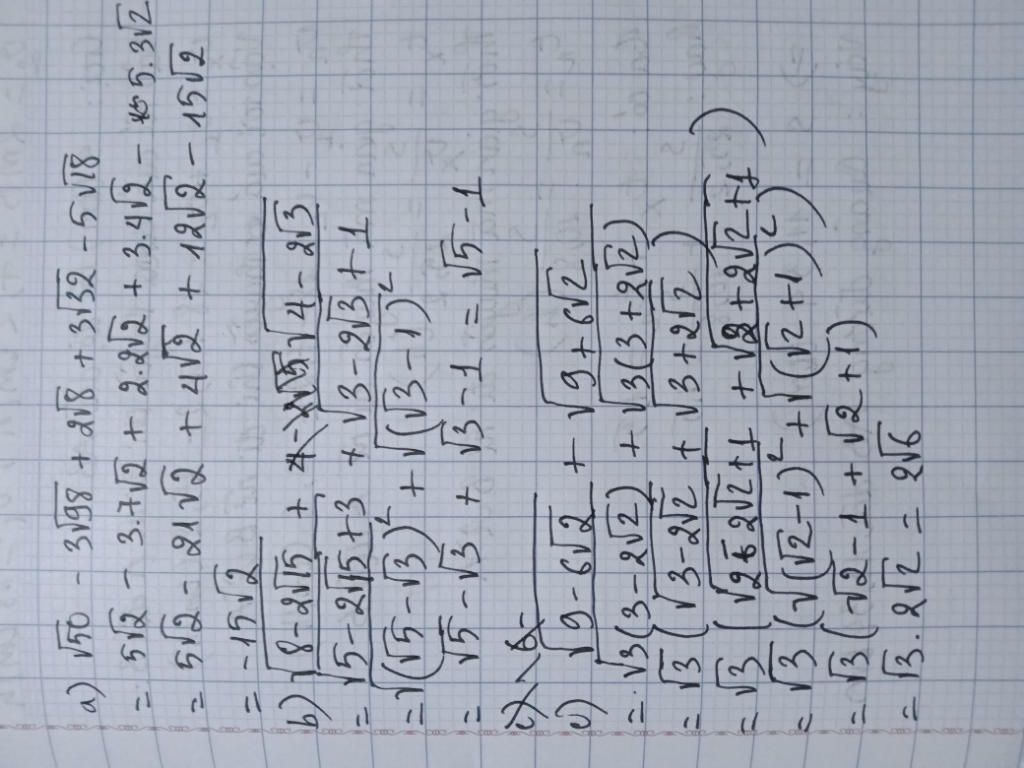 a) √50 - 3√98 + 2√8 + 3√32 - 5√18
= 5√2 - 3.7√2 + 2.2√2 + 3.4√2 - 5.3√2
= 5√2 - 21√2 + 4√2 + 12√2 - 15√2
= -15√2
b) √(8-2√15) + √(4-2√3)
= √(5-2√15+3) + √(3-2√3+1)
= √((√5-√3)²) + √((√3-1)²)
= √5-√3 + √3-1 = √5-1
c)
c) √(9-6√2) + √(9+6√2)
= √(3(3-2√2)) + √(3(3+2√2))
= √3 (√(3-2√2) + √(3+2√2))
= √3 (√(2-2√2+1) + √(2+2√2+1))
= √3 (√((√2-1)²) + √((√2+1)²))
= √3 (√2-1 + √2+1)
= √3.2√2 = 2√6